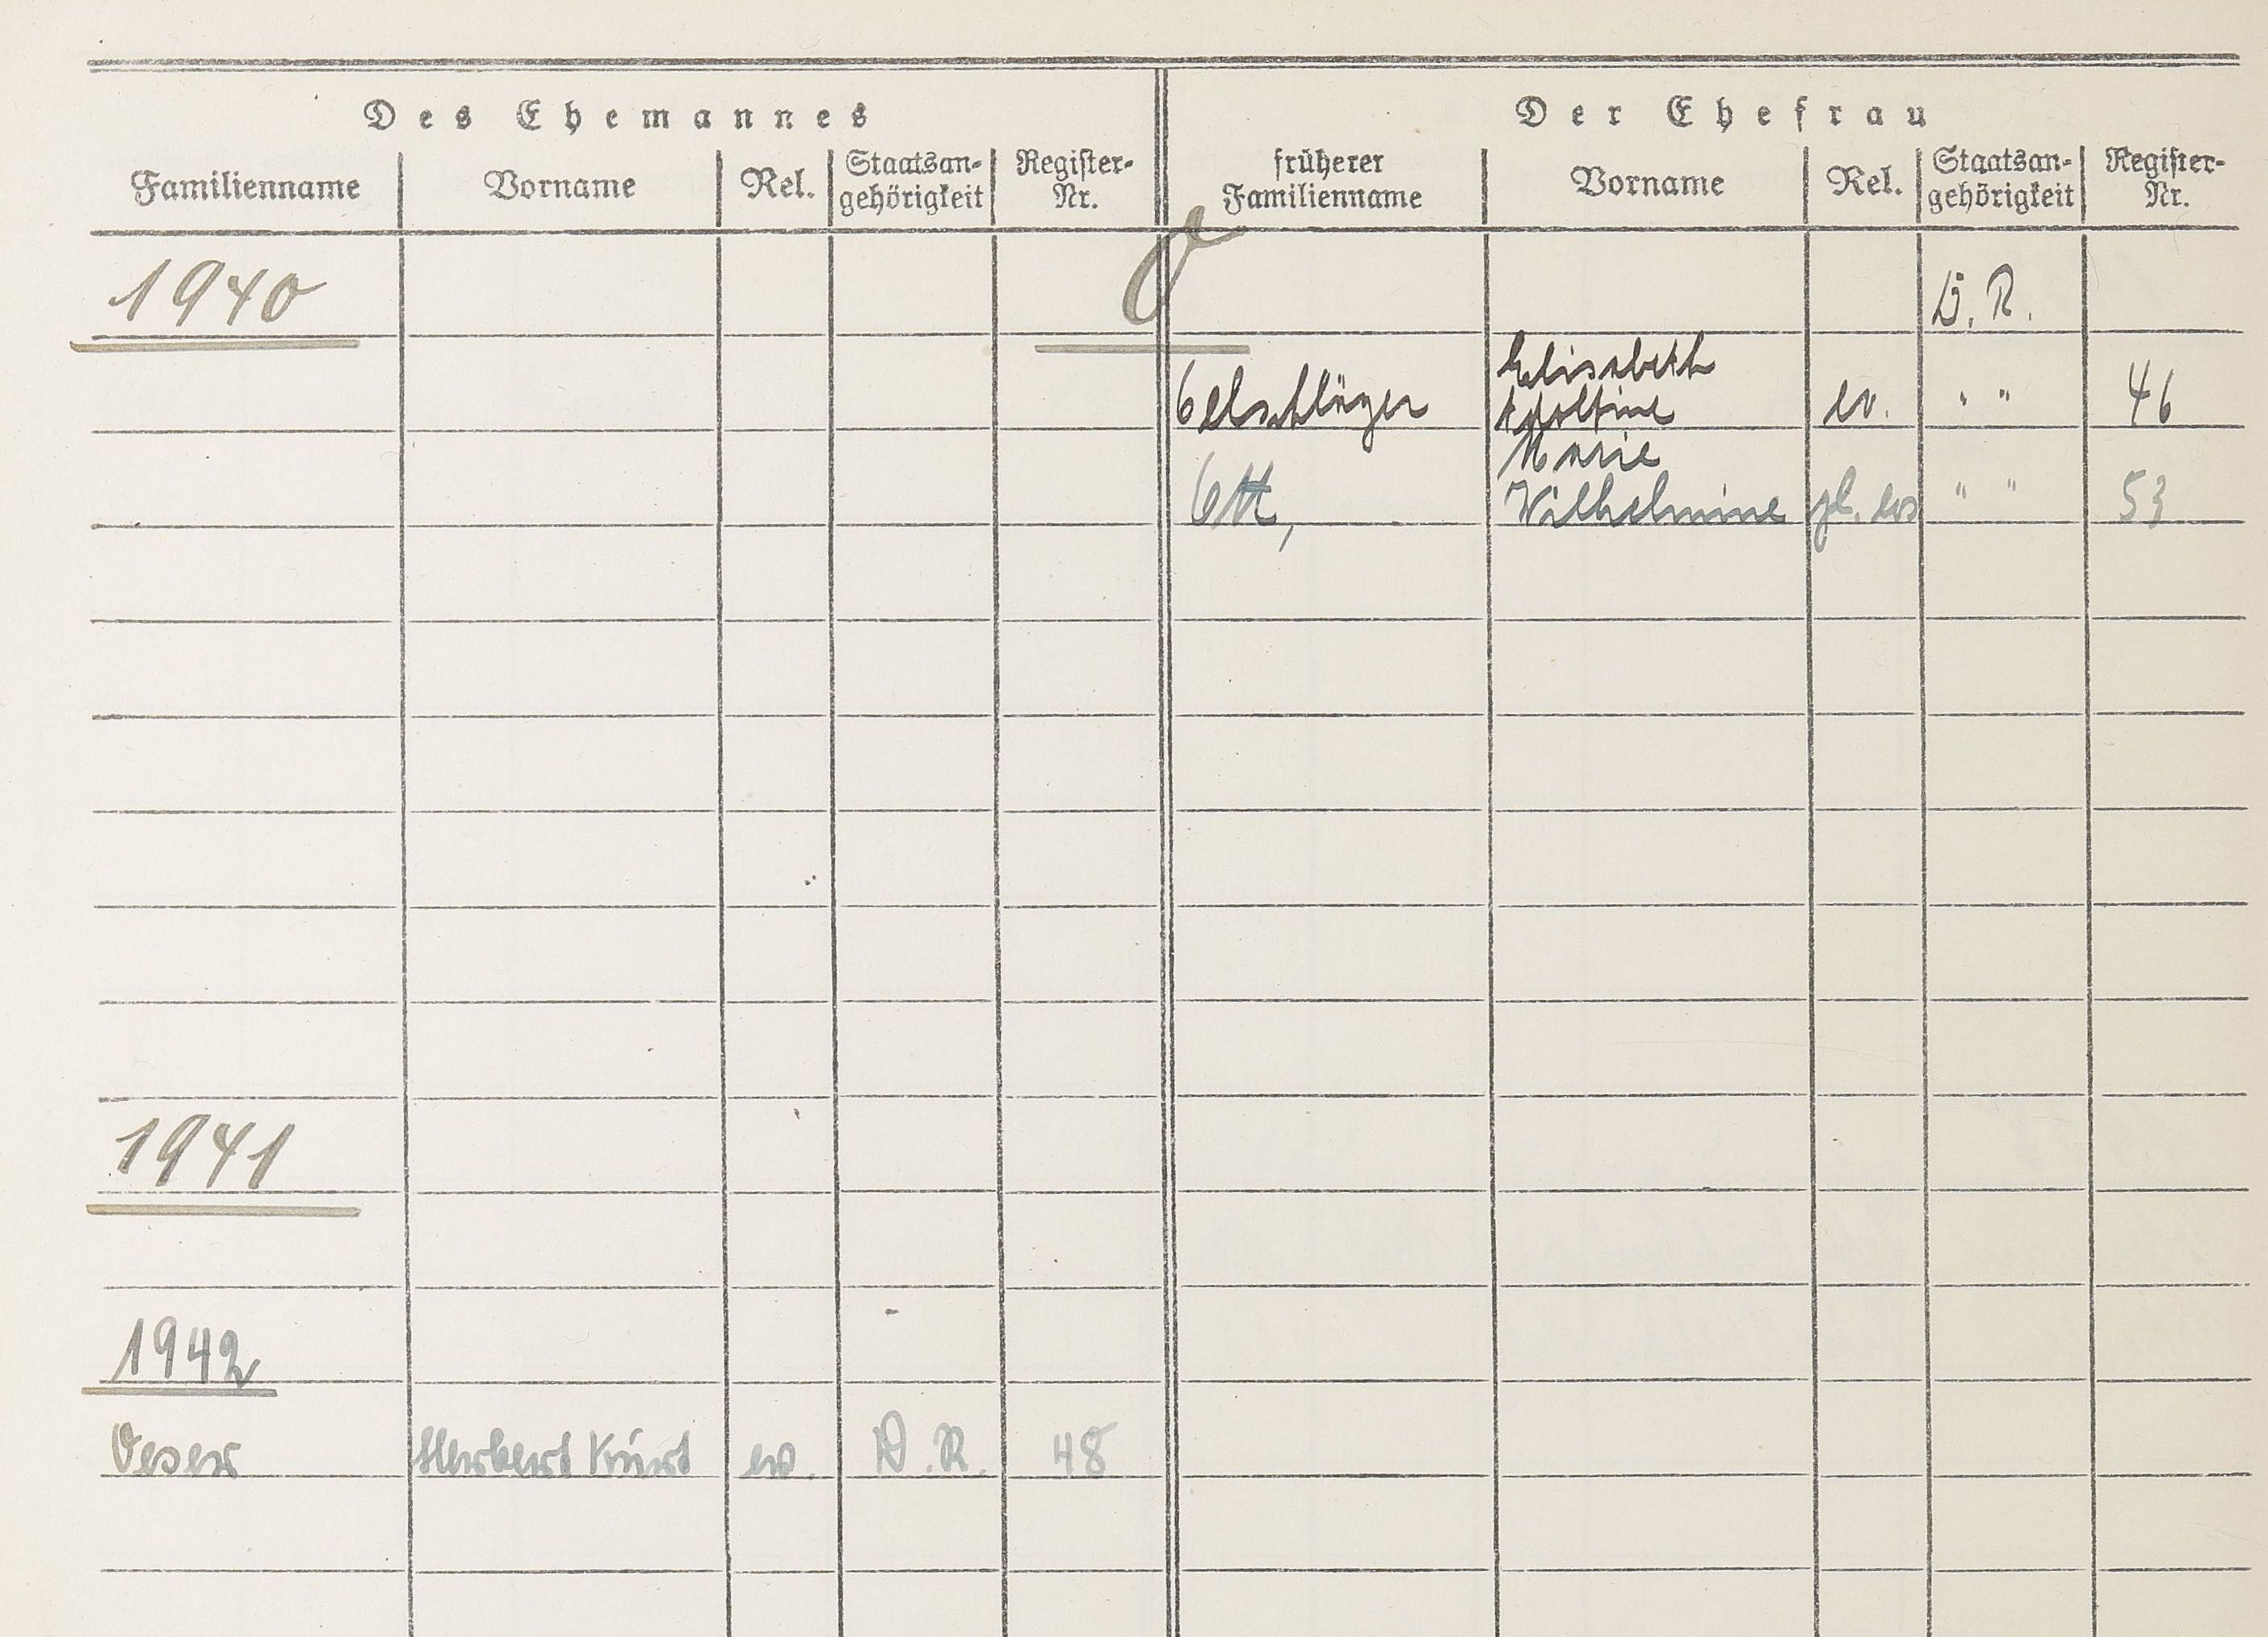 Des Ehemannes
Der Ehefrau
Familienname Vorname Rel. Staatsan- gehörigkeit Register- Nr. früherer Familienname Vorname Rel. Staatsan- gehörigkeit Register- Nr.
O
1940 D. R.
Elisabeth
Oelschläger Adolfine ev. " " 46
Marie
Ott, Wilhelmine gl. ev " " 53
1941
1942
Oeser Herbert Kurt ev. D. R. 48